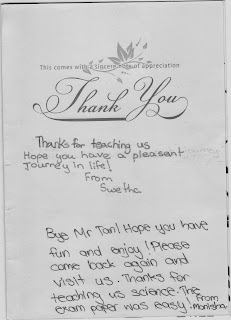 This comes with a sincere note of appreciation
Thank You
Thanks for teaching us
Hope you have a pleasent
journey in life!
From
Swetha
Bye Mr Tan! Hope you have
fun and enjoy! Please
come back again and
visit us. Thanks for
teaching us science. The
exam paper was easy!
From
Monisha